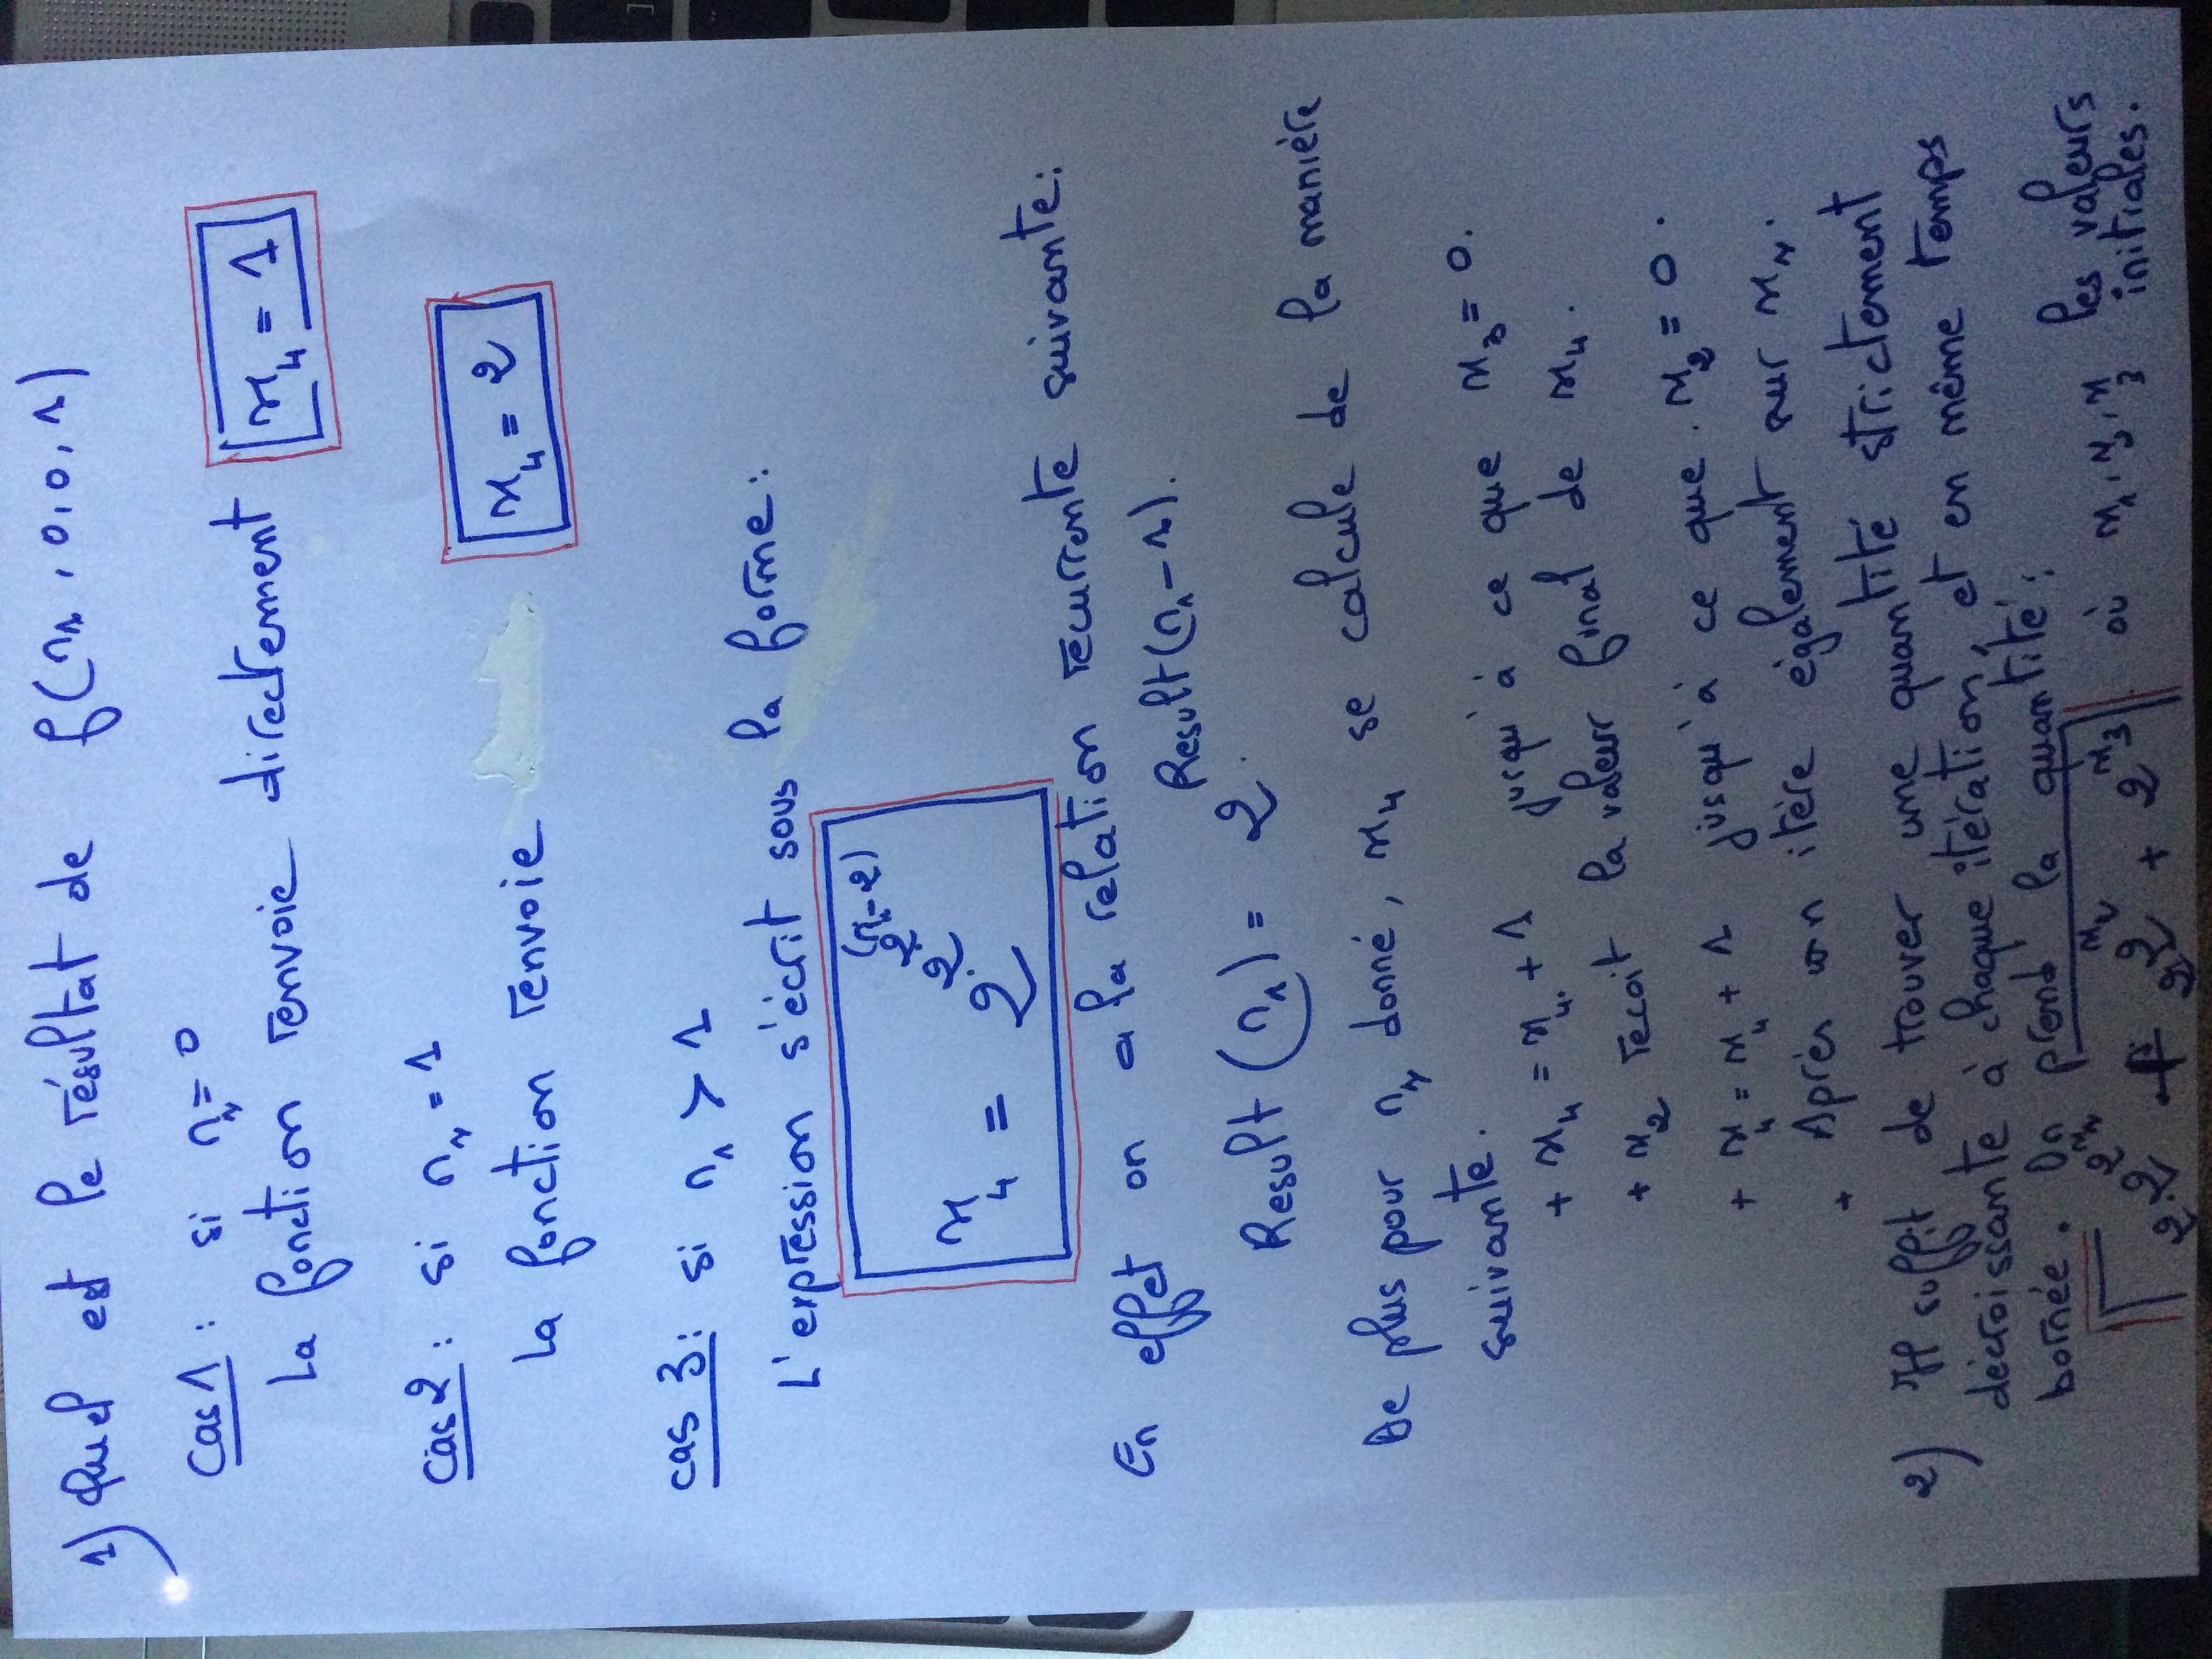 1) Quel est le résultat de f(n₁, 0, 0, 1)
Cas 1 : si n₁ = 0
La fonction renvoie directement x₄ = 1
Cas 2 : si n₁ = 1
La fonction renvoie x₄ = 2
cas 3 : si n₁ > 1
L'expression s'écrit sous la forme :
x₄ = 2^2^2^(n₁-2)
En effet on a la relation récurrente suivante :
Result (n₁) = 2^Result(n₁-1).
De plus pour n₁ donné, x₄ se calcule de la manière
suivante.
+ x₄ = x₄ + 1 jusqu'à ce que x₃ = 0.
+ x₂ recoit la valeur final de x₄.
+ x₄ = x₄ + 1 jusqu'à ce que x₂ = 0.
+ Après on itère également sur x₁.
2) Il suffit de trouver une quantité strictement
décroissante à chaque itération, et en même temps
bornée. On prend la quantité :
2^2^2^x₁ + 2^2^x₂ + 2^x₃ où x₁, x₂, x₃ les valeurs
initiales.